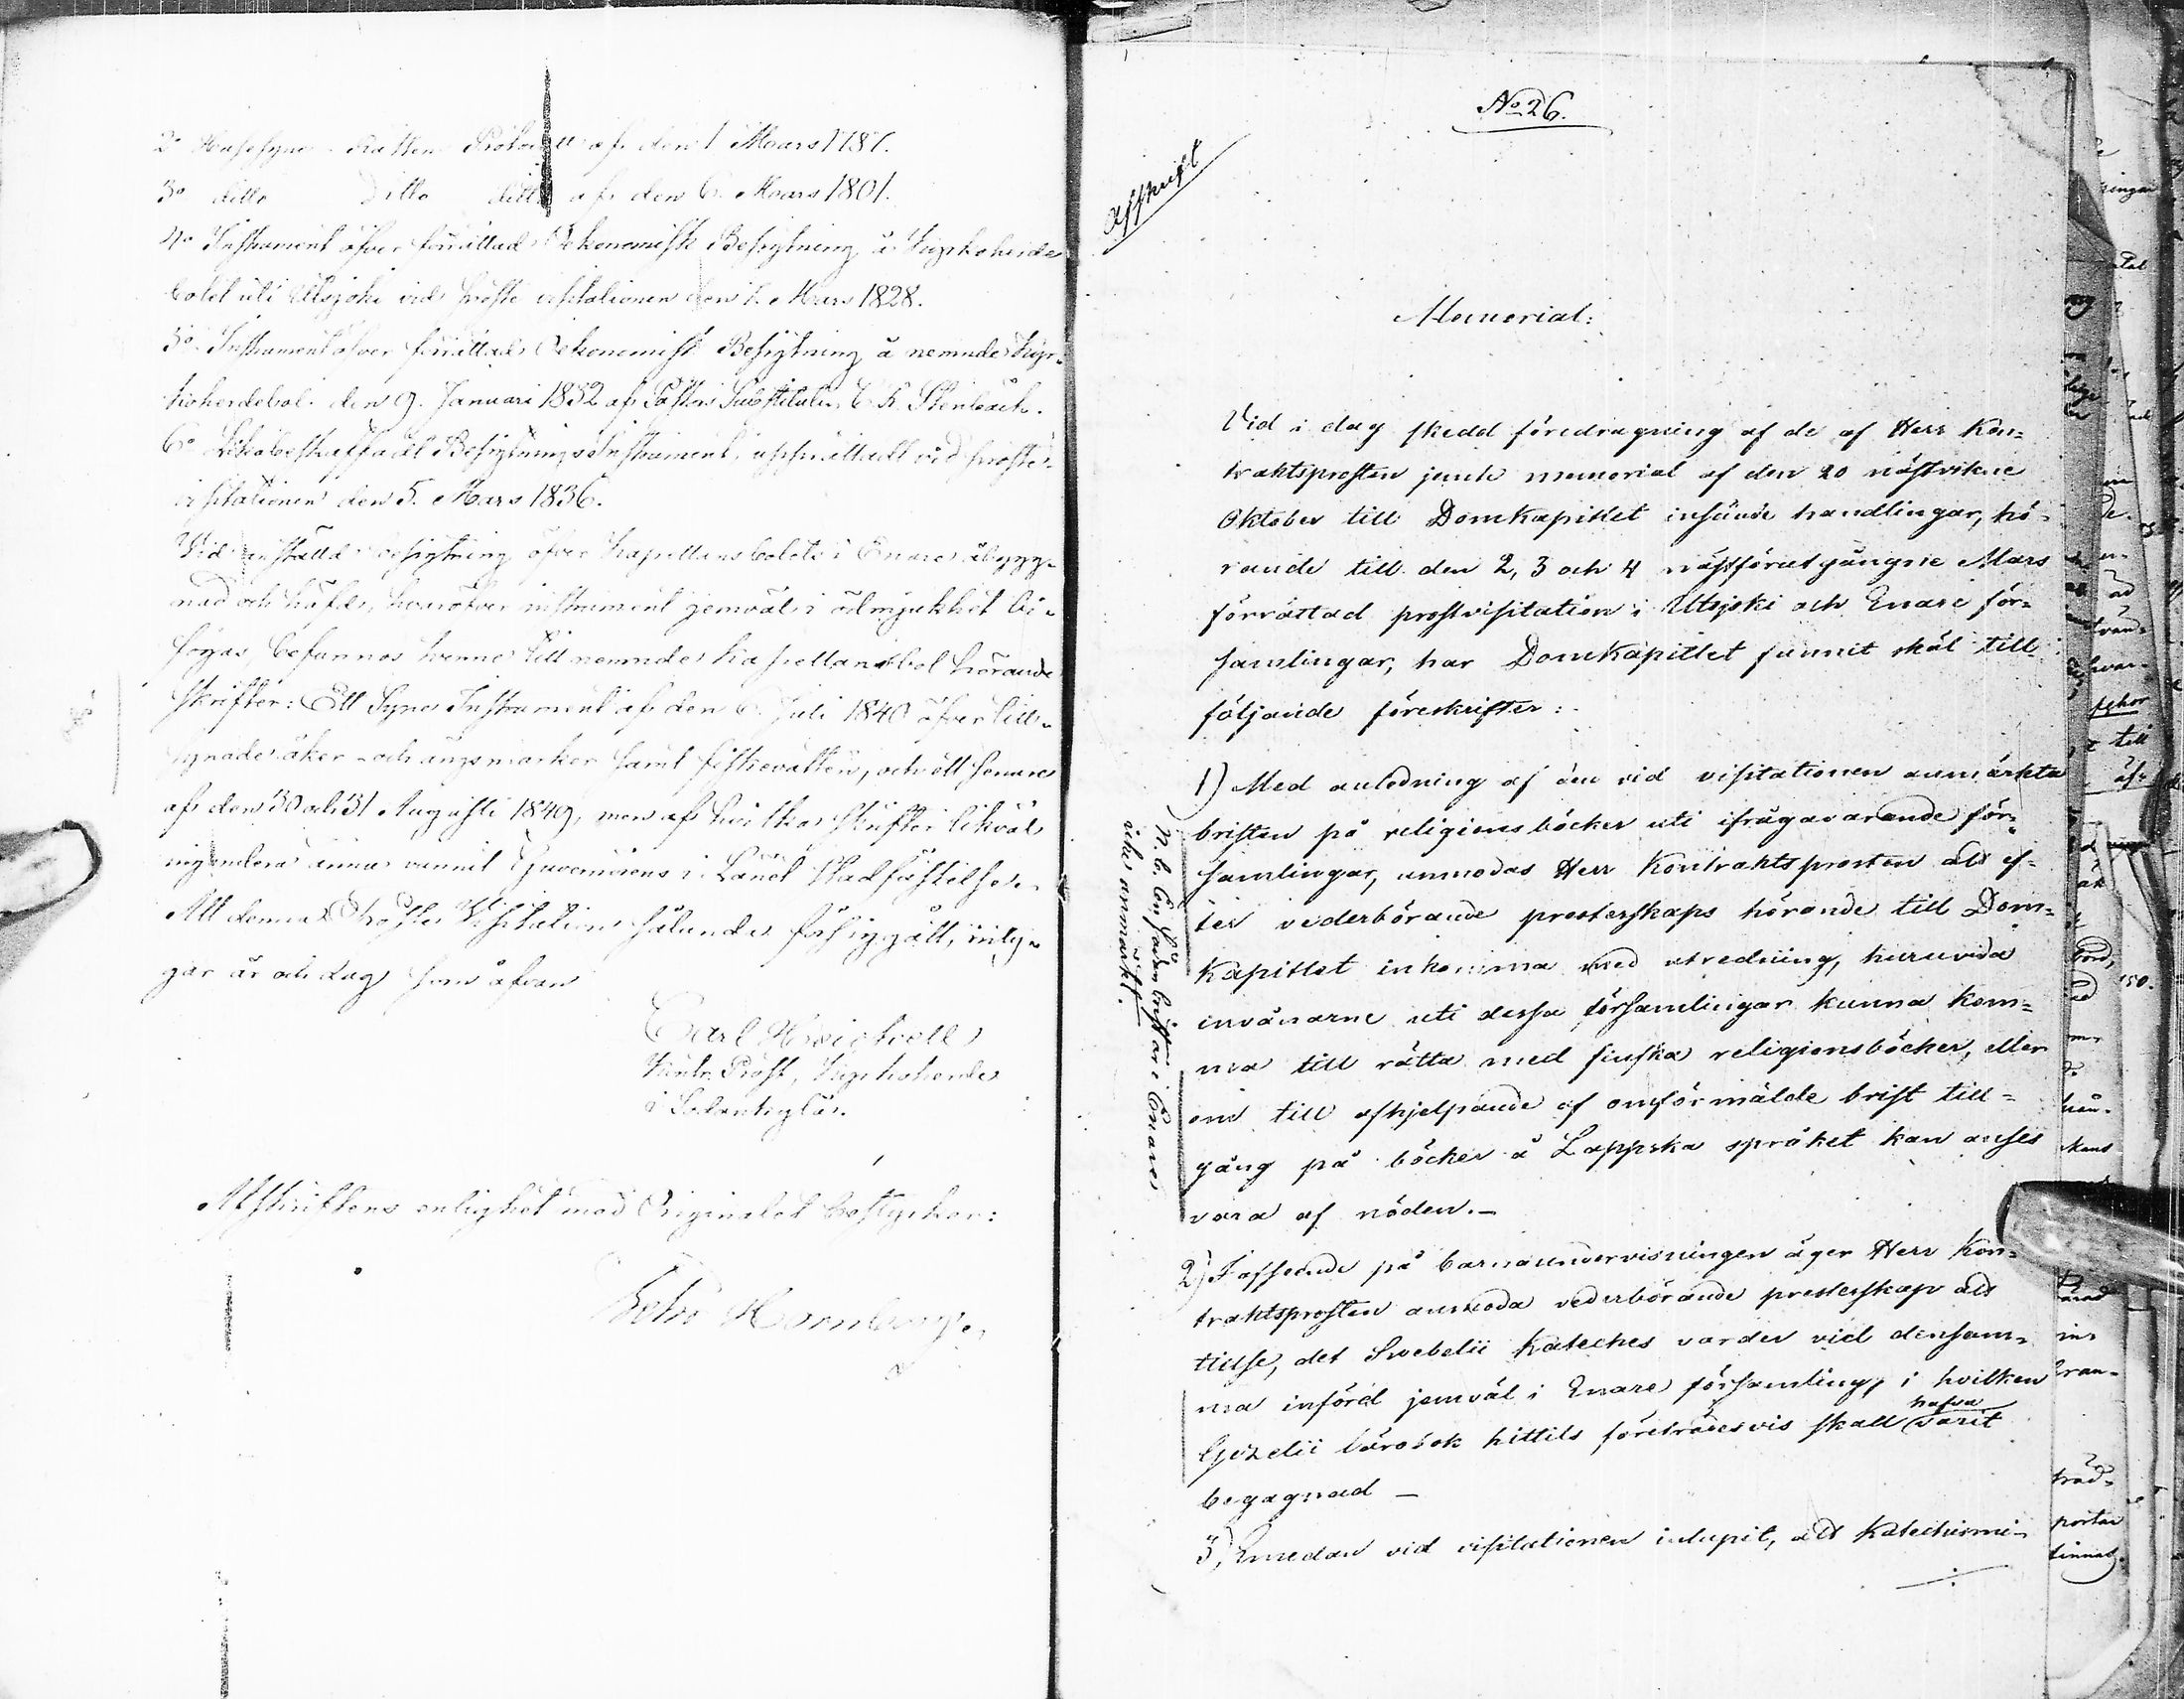 2o Husesyns-Rätten Protocoll af den 1 Mars 1787.
3o ditto Ditto ditto af den 6. Mars 1801.
4o Instrument öfver förrättad Oekonomisk Besigtning å Kyrkoherde
bolet uti Utsjoki vid Proste visitationen den 1. Mars 1828.
5o Instrument öfver förrättad Oekonomisk Besigtning å nemnde Kyr-
koherdebol den 9. Januari 1832 af Pastors Substituten Stenbäck.
6o Likabeskaffadt Besigtnings Instrument, upprättadt vid Proste-
visitationen den 5. Mars 1836.
Vid anställd besigtning öfver Kapellans bolets i Enare åbygg-
nad och häfd, hvaröfver instrument jemväl i ödmjukhet bi-
fogas, befunnos tvenne till nemnde Kapellansbol hörande
skrifter: Ett Syne Instrument af den 6. Juli 1840 öfver till-
synade åker- och ängsmarker samt fiskevatten, och ett senare
af den 30 och 31 Augusti 1849, men af hvilka skrifter likväl
ingendera ännu vunnit Guvernörens i Länet Stadfästelse.
Att denna Proste Visitation sålunda försiggått, inty-
gar år och dag som ofvan
Carl
Kontr. Prost, Kyrkoherde
i Sodankylä.
Afskriftens enlighet med Originalet bestyrker:
No 26.
Afskrift
Memorial:
Vid i dag skedd föredragning af de af Herr Kon-
traktsprosten jemte memorial af den 20 nästvikne
Oktober till Domkapitlet insände handlingar, hö-
rande till den 2, 3 och 4 nästförutgångne Mars
förrättad prostvisitation i Utsjoki och Enare för-
samlingar, har Domkapitlet funnit skäl till
följande föreskrifter:
1) Med anledning af den vid visitationen anmärkta
bristen på religionsböcker uti ifrågavarande för-
samlingar, anmodas Herr Kontraktsprosten att ef-
ter vederbörande presterskaps hörande till Dom-
kapitlet inkomma med utredning, huruvida
invånarne uti dessa församlingar kunna kom-
ma till rätta med finska religionsböcker, eller
om till afhjelpande af omförmälde brist till-
gång på böcker å Lappska språket kan anses
vara af nöden.-
N.b. En sådan brist är i Enare
icke anmärkt.
2) I afseende på barnaundervisningen äger Herr Kon-
traktsprosten anmoda vederbörande presterskap att
tillse, det Svebelii Kateches varder vid densam-
ma införd jemväl i Enare församling, i hvilken
hafva
Gezelii lärobok hittils företrädesvis skall varit
begagnad -
3) Emedan vid visitationen inlupit, att Katechismi-